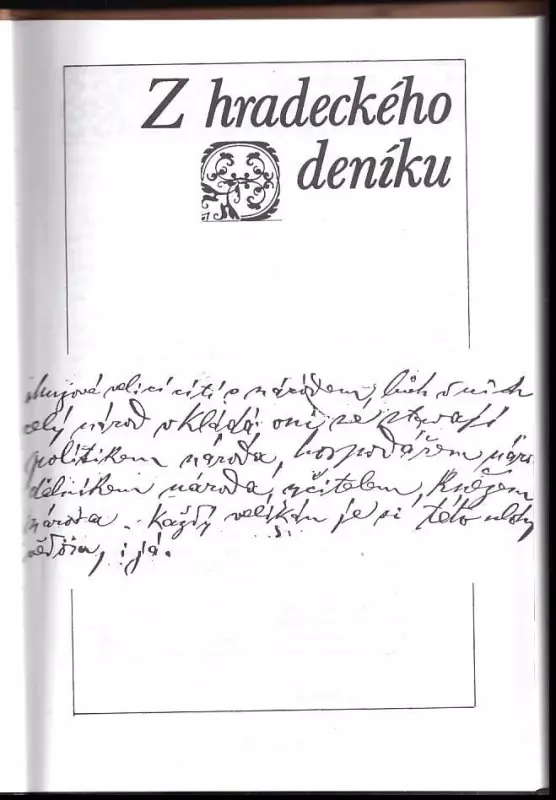 Z hradeckého
deníku
velicí cítí s národem, bůh v nich
celý národ vkládá oni se stávají
politikem národa, hospodářem náro
dělníkem národa, učitelem, knězem
národa. Každý velikán je si této úlohy
vědom, i já.